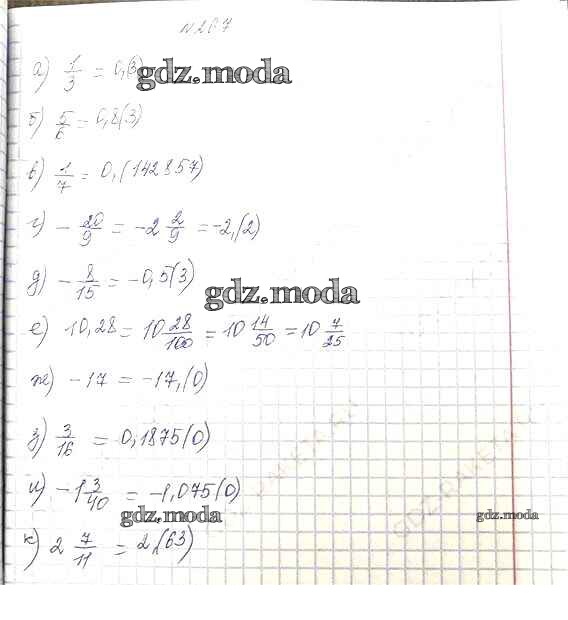 №267
а) 1/3 = 0,(3)
gdz.moda
б) 5/6 = 0,8(3)
в) 1/7 = 0,(142857)
г) - 20/9 = -2 2/9 = -2,(2)
д) - 8/15 = -0,5(3)
gdz.moda
е) 10,28 = 10 28/100 = 10 14/50 = 10 7/25
ж) -17 = -17,(0)
з) 3/16 = 0,1875(0)
и) -1 3/40 = -1,075(0)
gdz.moda
gdz.moda
к) 2 7/11 = 2,(63)